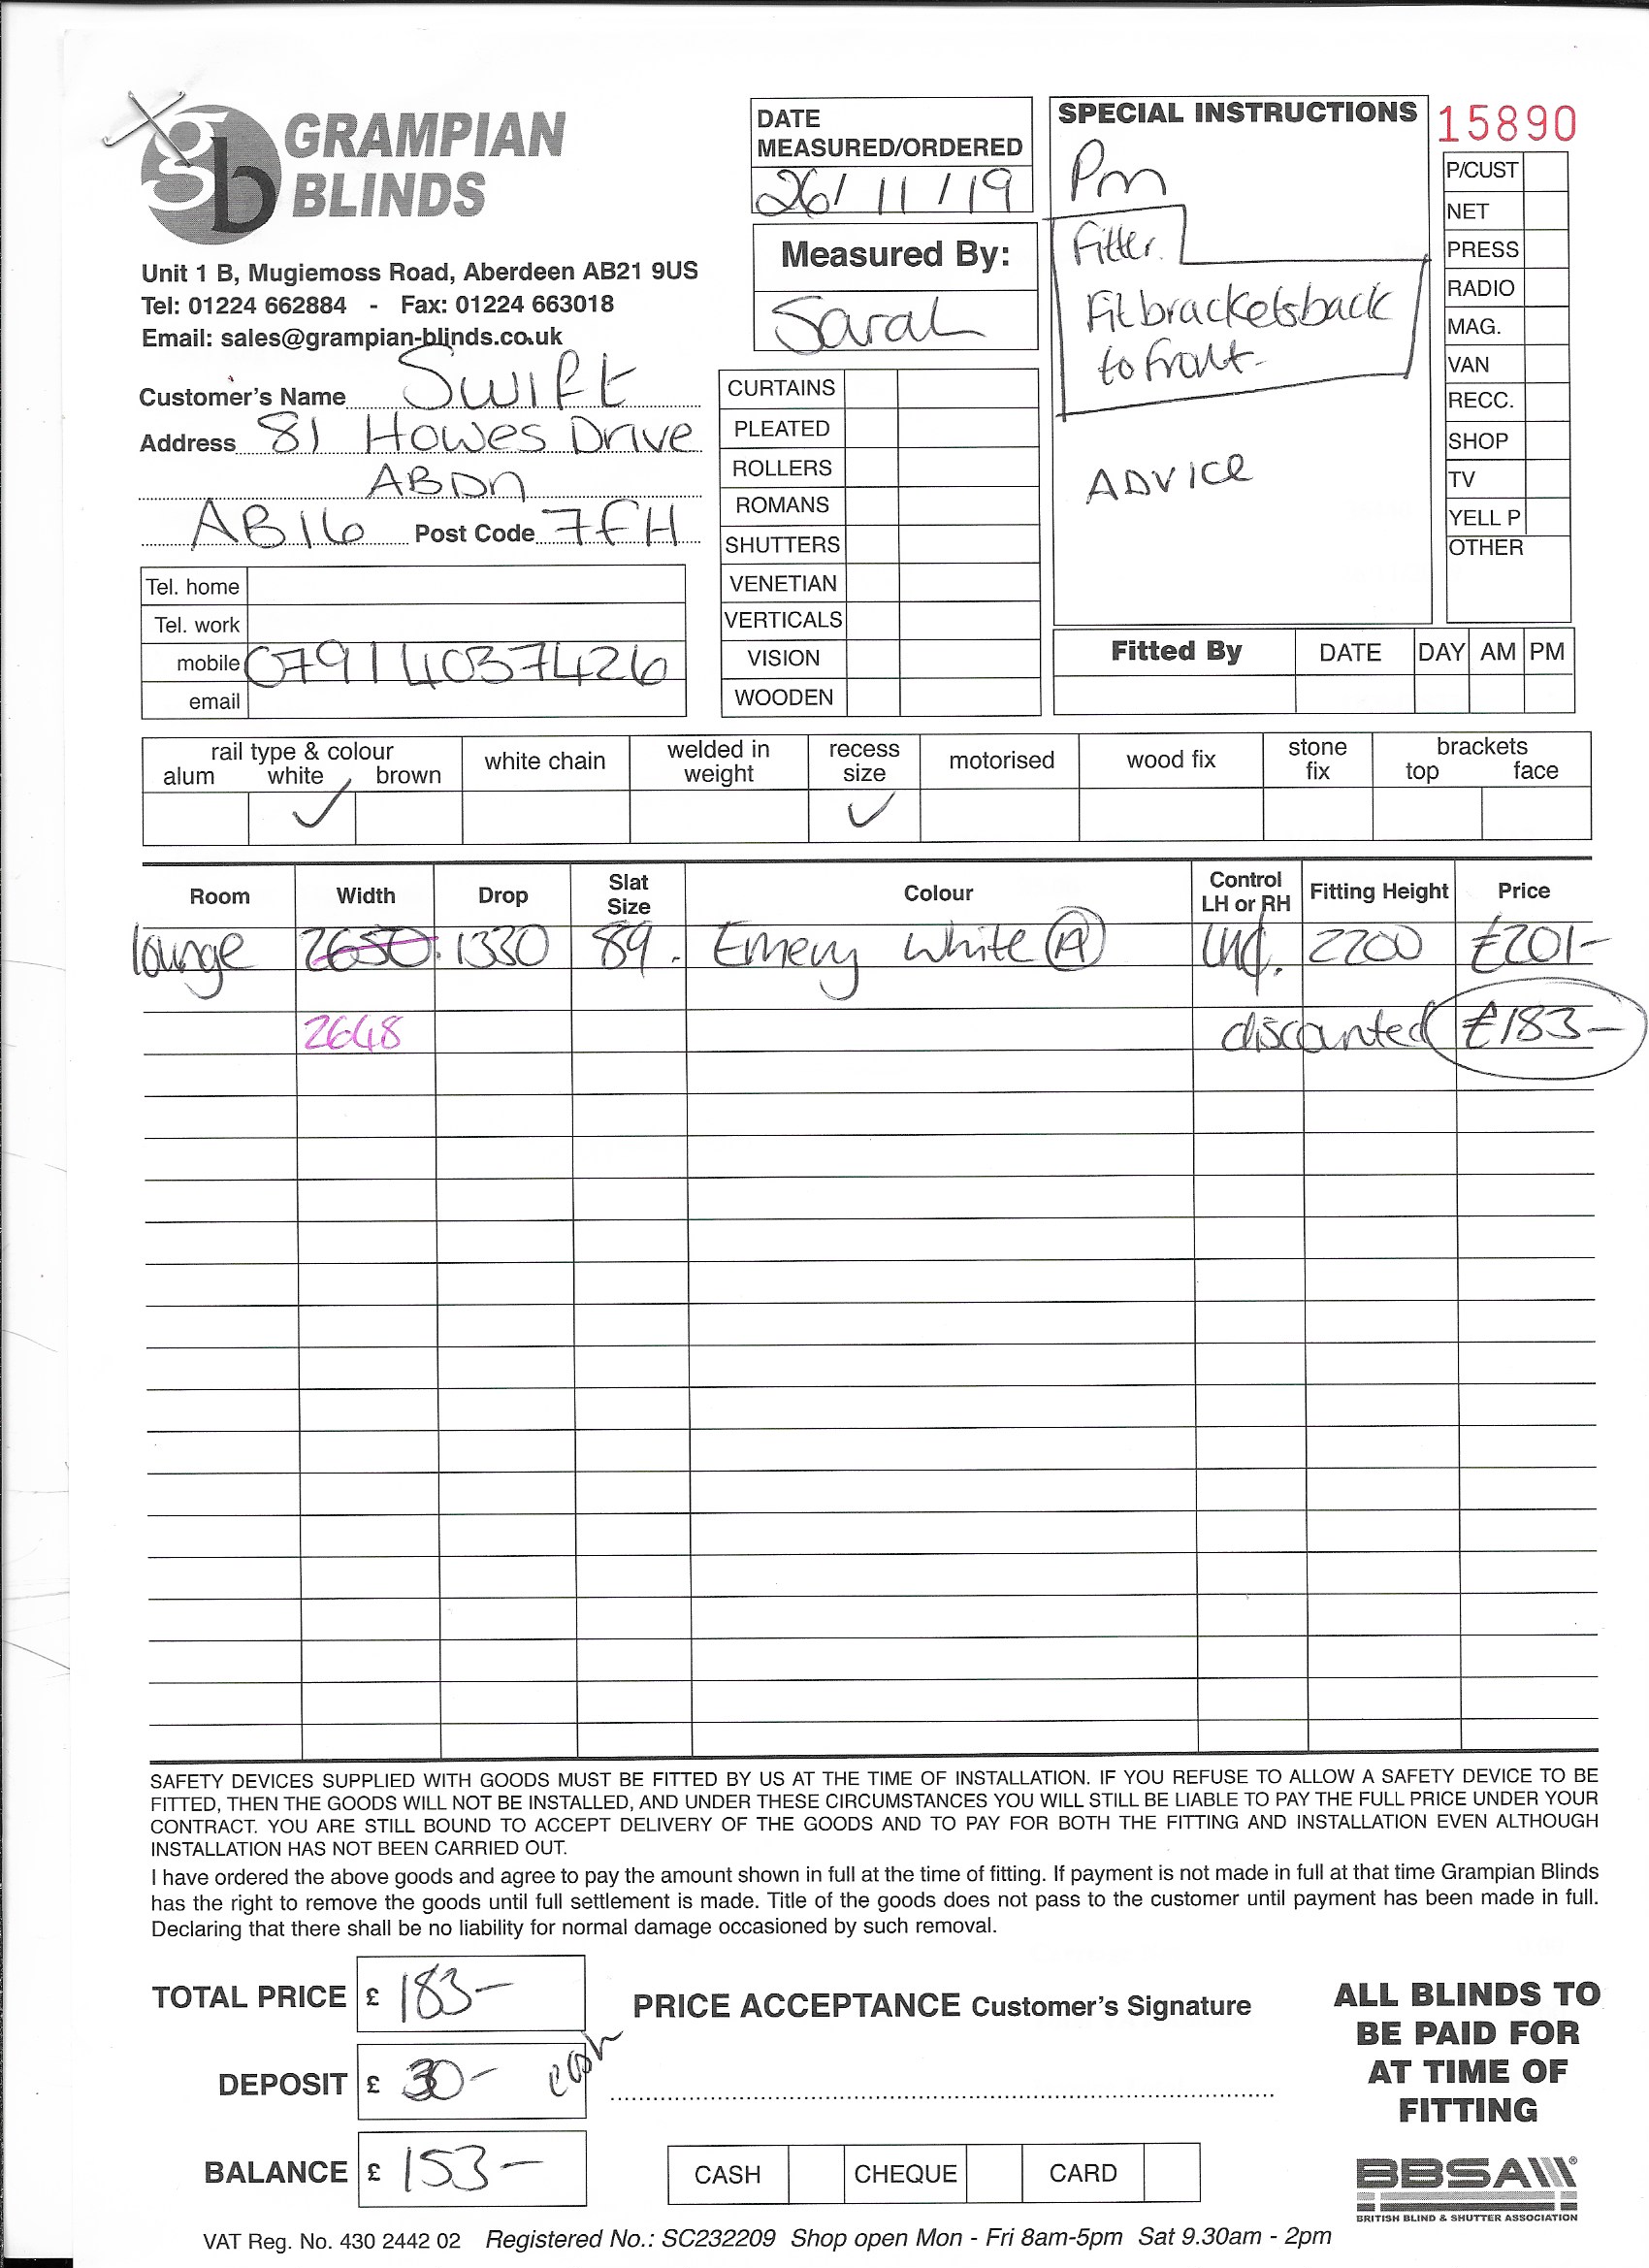 gb GRAMPIAN
BLINDS
Unit 1 B, Mugiemoss Road, Aberdeen AB21 9US
Tel: 01224 662884 - Fax: 01224 663018
Email: sales@grampian-blinds.co.uk
Customer's Name Swift
Address 81 Howes Drive
ABDn
AB16 Post Code 7FH
Tel. home
Tel. work
mobile 07914037426
email
DATE
MEASURED/ORDERED
26/11/19
Measured By:
Sarah
CURTAINS
PLEATED
ROLLERS
ROMANS
SHUTTERS
VENETIAN
VERTICALS
VISION
WOODEN
SPECIAL INSTRUCTIONS
Pm
Fitter.
Fit brackets back
to front-
ADVICE
15890
P/CUST
NET
PRESS
RADIO
MAG.
VAN
RECC.
SHOP
TV
YELL P
OTHER
Fitted By DATE DAY AM PM
rail type & colour white chain welded in weight recess size motorised wood fix stone fix brackets
alum white brown top face
✓ ✓
Room Width Drop Slat Size Colour Control LH or RH Fitting Height Price
lounge 2650. 1330 89. Emery White (A) 2200 £201-
2648 discounted £183-
SAFETY DEVICES SUPPLIED WITH GOODS MUST BE FITTED BY US AT THE TIME OF INSTALLATION. IF YOU REFUSE TO ALLOW A SAFETY DEVICE TO BE
FITTED, THEN THE GOODS WILL NOT BE INSTALLED, AND UNDER THESE CIRCUMSTANCES YOU WILL STILL BE LIABLE TO PAY THE FULL PRICE UNDER YOUR
CONTRACT. YOU ARE STILL BOUND TO ACCEPT DELIVERY OF THE GOODS AND TO PAY FOR BOTH THE FITTING AND INSTALLATION EVEN ALTHOUGH
INSTALLATION HAS NOT BEEN CARRIED OUT.
I have ordered the above goods and agree to pay the amount shown in full at the time of fitting. If payment is not made in full at that time Grampian Blinds
has the right to remove the goods until full settlement is made. Title of the goods does not pass to the customer until payment has been made in full.
Declaring that there shall be no liability for normal damage occasioned by such removal.
TOTAL PRICE £ 183-
DEPOSIT £ 30- cash
BALANCE £ 153-
PRICE ACCEPTANCE Customer's Signature
CASH CHEQUE CARD
ALL BLINDS TO
BE PAID FOR
AT TIME OF
FITTING
BBSA
BRITISH BLIND & SHUTTER ASSOCIATION
VAT Reg. No. 430 2442 02 Registered No.: SC232209 Shop open Mon - Fri 8am-5pm Sat 9.30am - 2pm